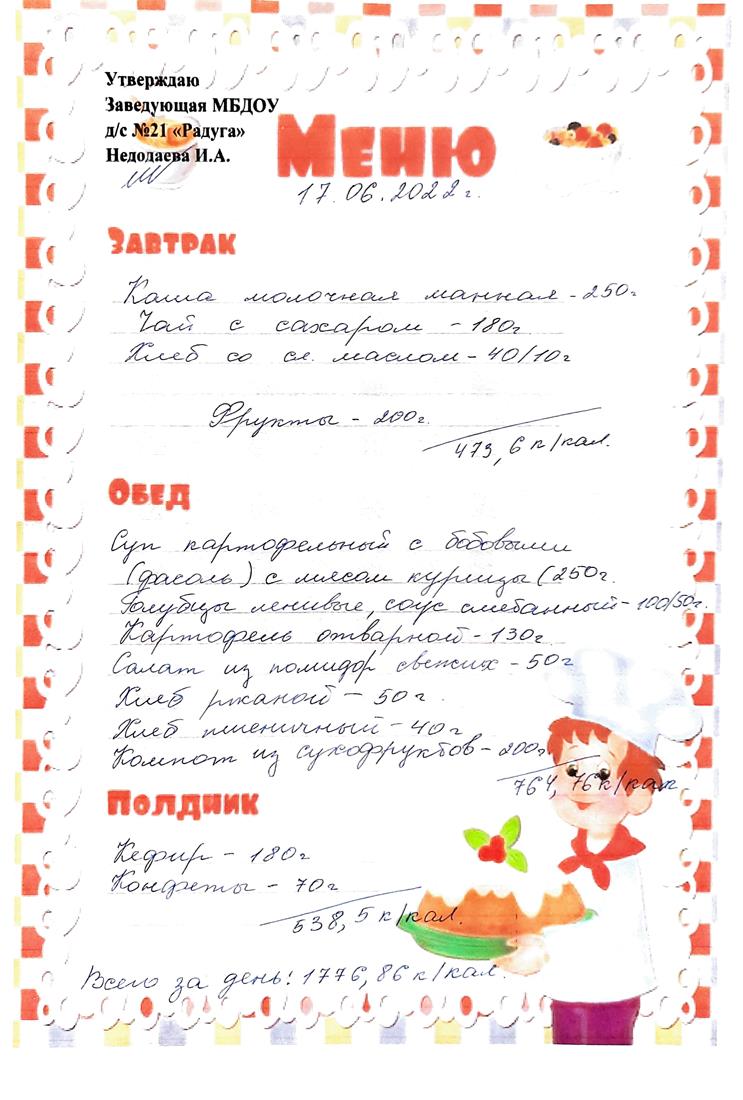 Утверждаю
Заведующая МБДОУ
д/с №21 «Радуга»
Недодаева И.А.
Меню
17.06.2022г.
Завтрак
Каша молочная манная - 250г
Чай с сахаром - 180г
Хлеб со сл. маслом - 40/10г
Фрукты - 200г.
473,6 к/кал.
Обед
Суп картофельный с бобовыми
(фасоль) с мясом курицы (250г.
Голубцы ленивые, соус сметанный - 100/50г.
Картофель отварной - 130г
Салат из помидор свежих - 50г
Хлеб ржаной - 50г
Хлеб пшеничный - 40г
Компот из сухофруктов - 200г
764,76 к/кал
Полдник
Кефир - 180г
Конфеты - 70г
538,5 к/кал.
Всего за день: 1776,86 к/кал.